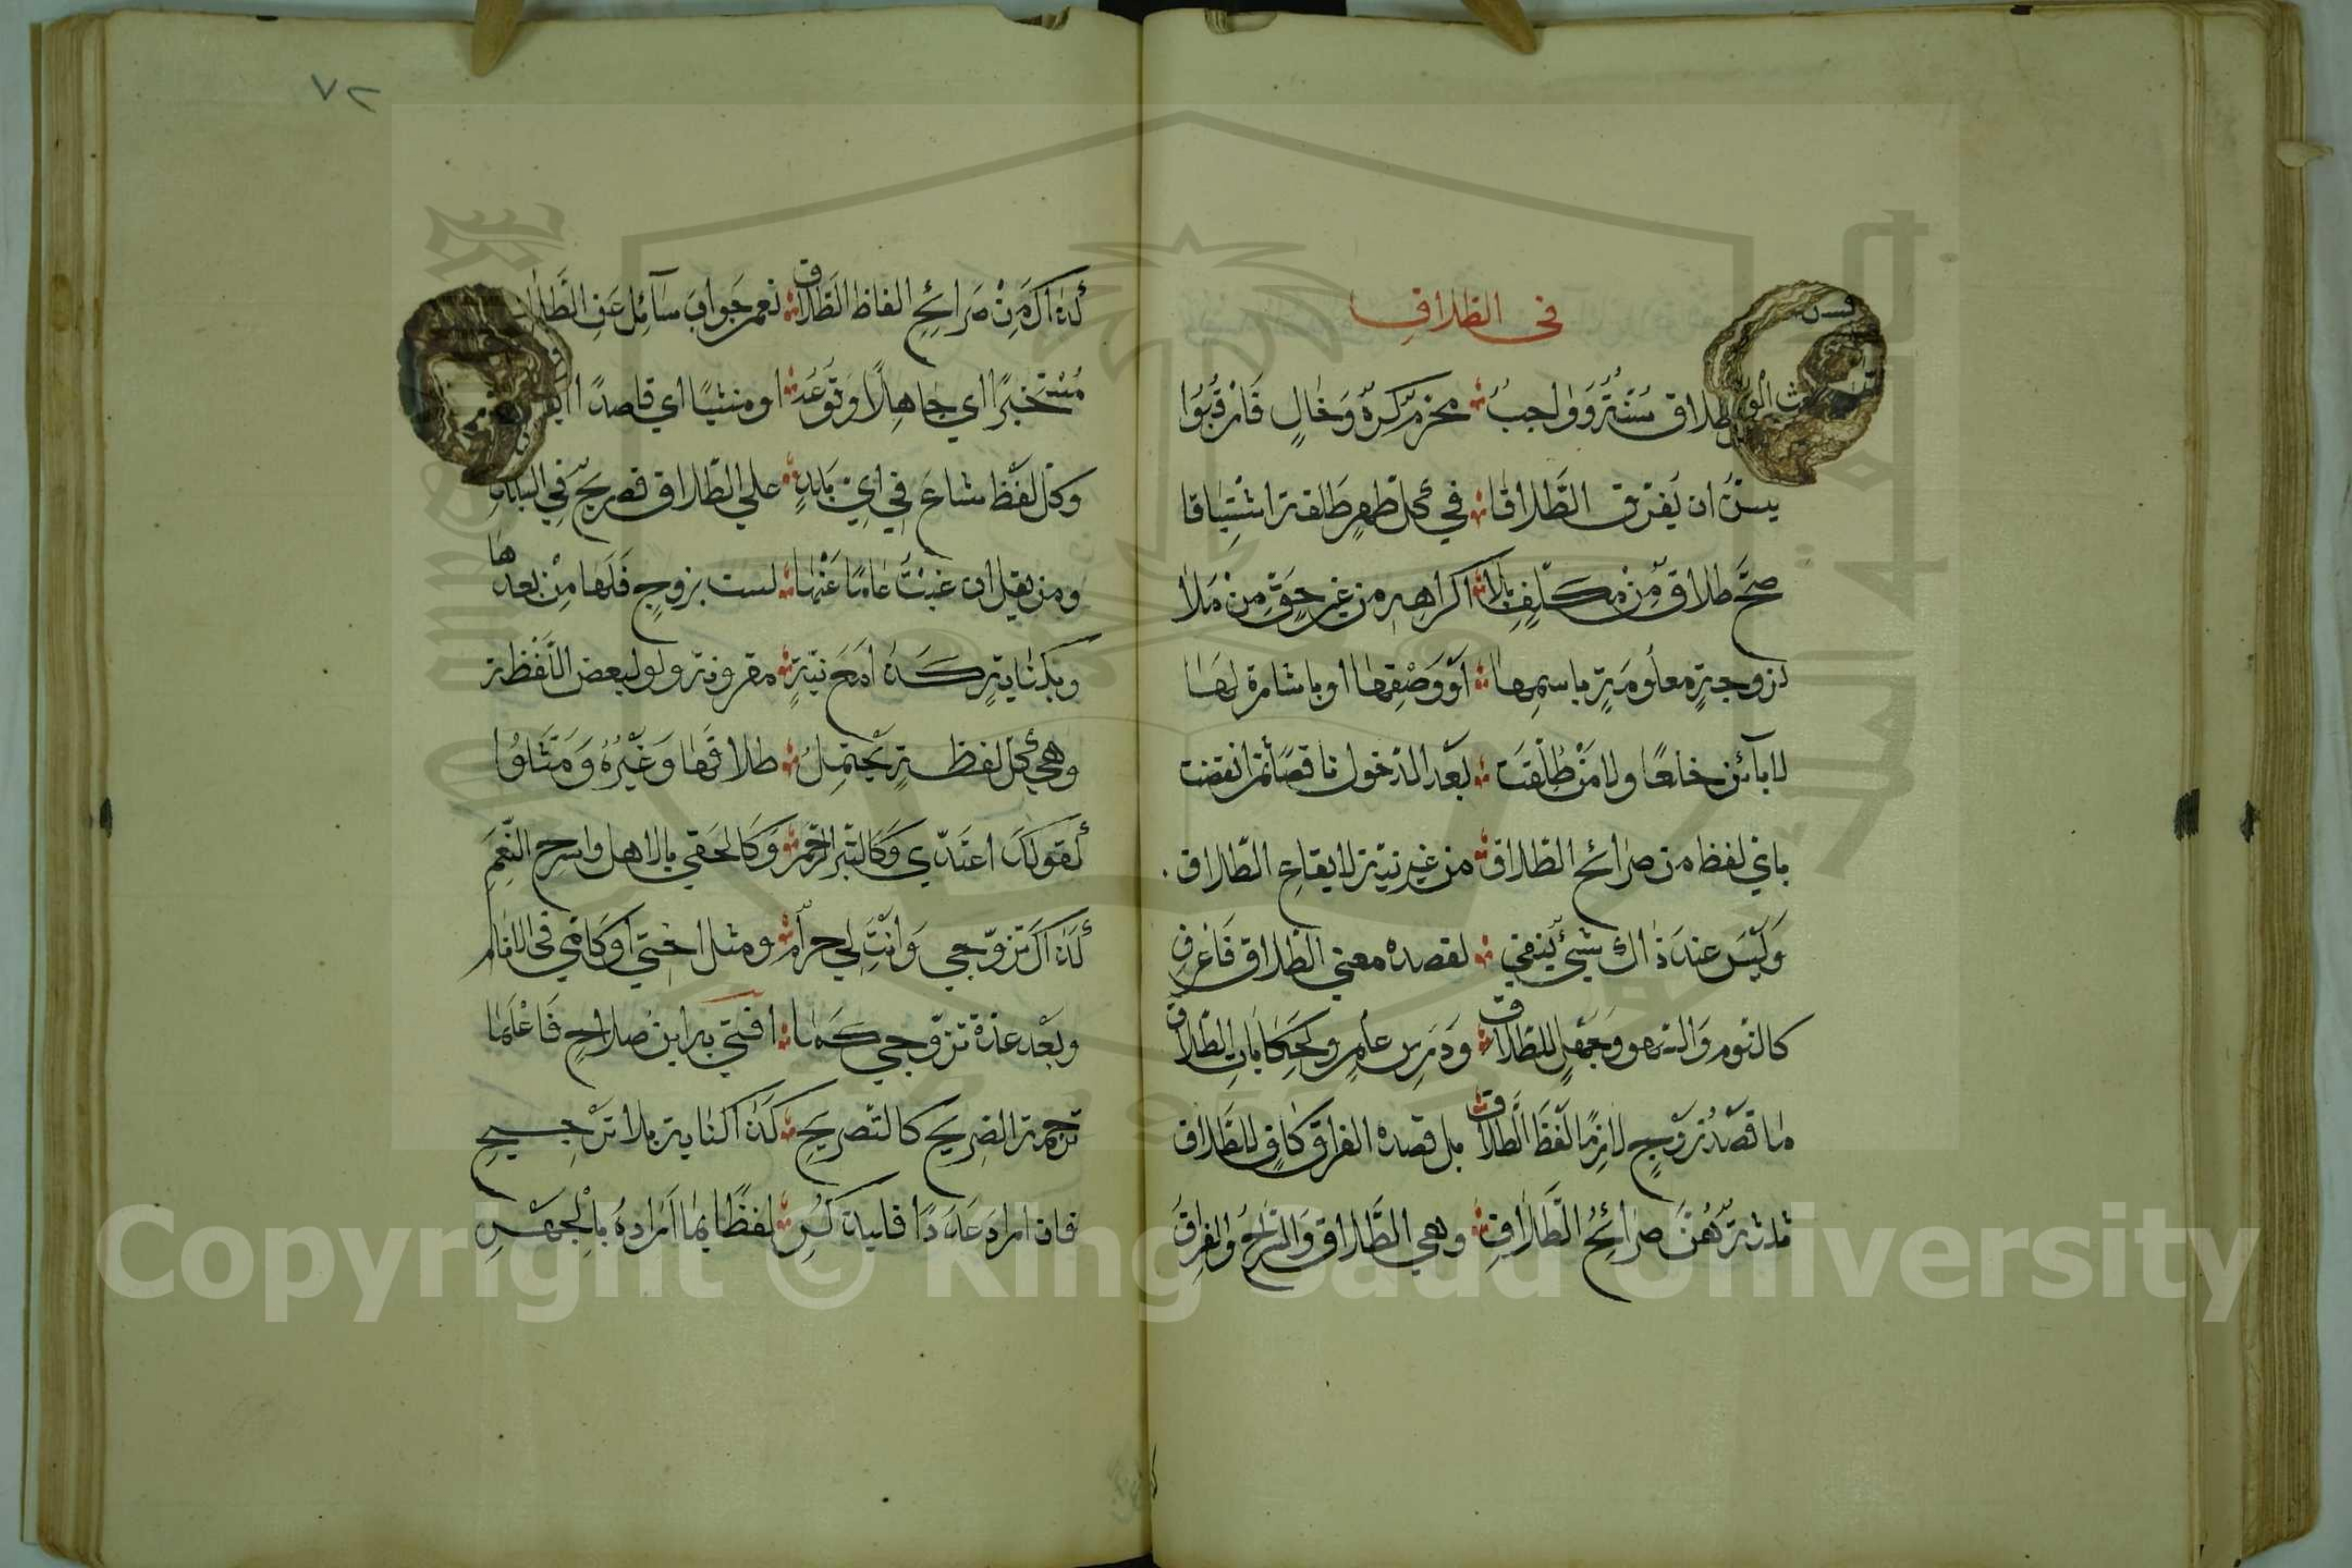 في الطلاق
طلاق سنة وواجب محرم كره وخال فارقبوا
يسن ان يفرق الطلاقا في كل طهر طلقة اشتياقا
صح طلاق من مكلف بلا اكراهه من غير حق من ملا
لزوجة معلومة باسمها او وصفها او باشارة لها
لا بائن خلعا ولا من طلقت بعد الدخول ناقصا ثم انقضت
باي لفظ من صرائح الطلاق من غير نية لايقاع الطلاق
وليس عند ذاك شيئ ينفي لقصده معني الطلاق فاعرف
كالنوم والسهو وجهل للطلاق ودرس علم وحكايات الطلاق
ما قصد زوج لازما لفظ الطلاق بل قصده الفراق كاف للطلاق
ثلاثة هن صرائح الطلاق وهي الطلاق والسراح والفراق
٧٢
كذاك من صرائح الفاظ الطلاق نعم جواب سائل عن الطلاق
مستخبرا اي جاهلا وتوعد او منشيا اي قاصدا
وكل لفظ شاع في اي بلدة علي الطلاق فصريح في البلدة
ومن يقل ان غبت عاما عنها لست بزوج فلها من بعدها
وبكناية كذا مع نية مقرونة ولو لبعض اللفظة
وهي كل لفظة يحتمل طلاقها وغيره ومثلوا
كقولك اعتدي وكالتبر الرحم وكالحقي بالاهل واسرح النعم
كذاك تزوجي وانت لي حرام ومثل اختي او كامي في الانام
وبعد عدة تزوجي كما افتي به ابن صلاح فاعلما
ترجمة الصريح كالتصريح كذا كناية بلا ترجيح
فان اراد عددا فليدكر لفظا بما اراده بالجهر
Copyright © King Saud University